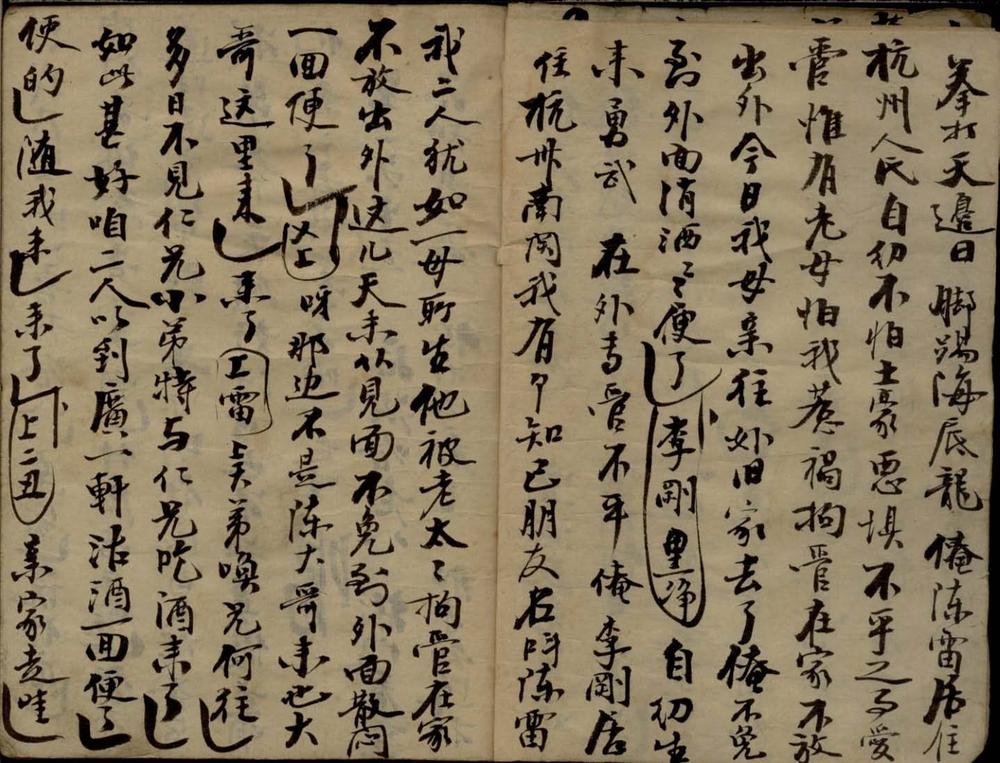 拳打天邉日 脚踢海底龍 俺陈雷居住
杭州人氏自幼不怕土豪恶惧不平之事愛
管惟有老母怕我惹禍拘管在家不放
出外今日我母亲往外旧家去了俺不免
到外面消洒〻便了 李剛黑净 自幼生
来勇武 在外专管不平 俺李剛居
住杭州南関我有个知已朋友名叫陈雷
我二人犹如一母所生他被老太〻拘管在家
不放出外这几天未从見面不免到外面散悶
一回便了 又上 呀那边不是陈大哥来也大
哥这里来 来了 工雷 上 天弟唤兄何往
多日不見仁兄小弟特与仁兄吃酒来了
如此甚好咱二人以到廣一軒沽酒一回便了
便的 随我来 来了 上二丑 亲家走哇